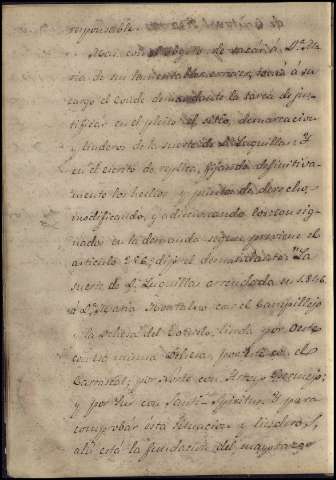 responsable.
Mas con el fin de sacar á D.ª Ma
ria de tan lamentables errores, tomó á su
cargo el Conde demandante la tarea de jus
tificar en el pleito el sitio, demarcacion
y linderos de la suerte de D. Luquillas. Y
en el escrito de replica, fijando definitiva
mente los hechos y puntos de derecho,
modificando, y adicionando los consig
nados en la demanda segun previene el
articulo 256, dijo el demandante: "La
suerte de D. Luquillas arrendada en 1846
á D.ª Maria Montalvo con el Campillejo
y la Dehesa del linda por Oeste
con esa misma Dehesa, por Este con el
Carrascal; por Norte con
y por Sur con Sancti-Spiritus. Y para
comprobar esta situacion y linderos,
ahí está la fundacion del mayorazgo